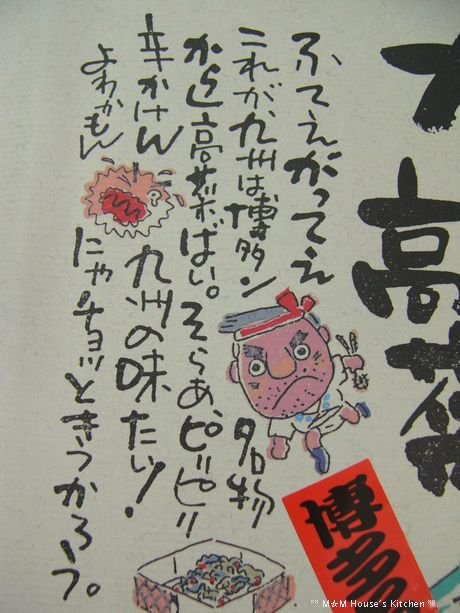 高菜
ふてえがってえ
これが九州は博多ン名物
からし高菜ばい。そらあ、ピリピリ
辛かけん九州の味たい!
よわかもんにゃ、チョッときつかろう。
博多
M★M House's Kitchen